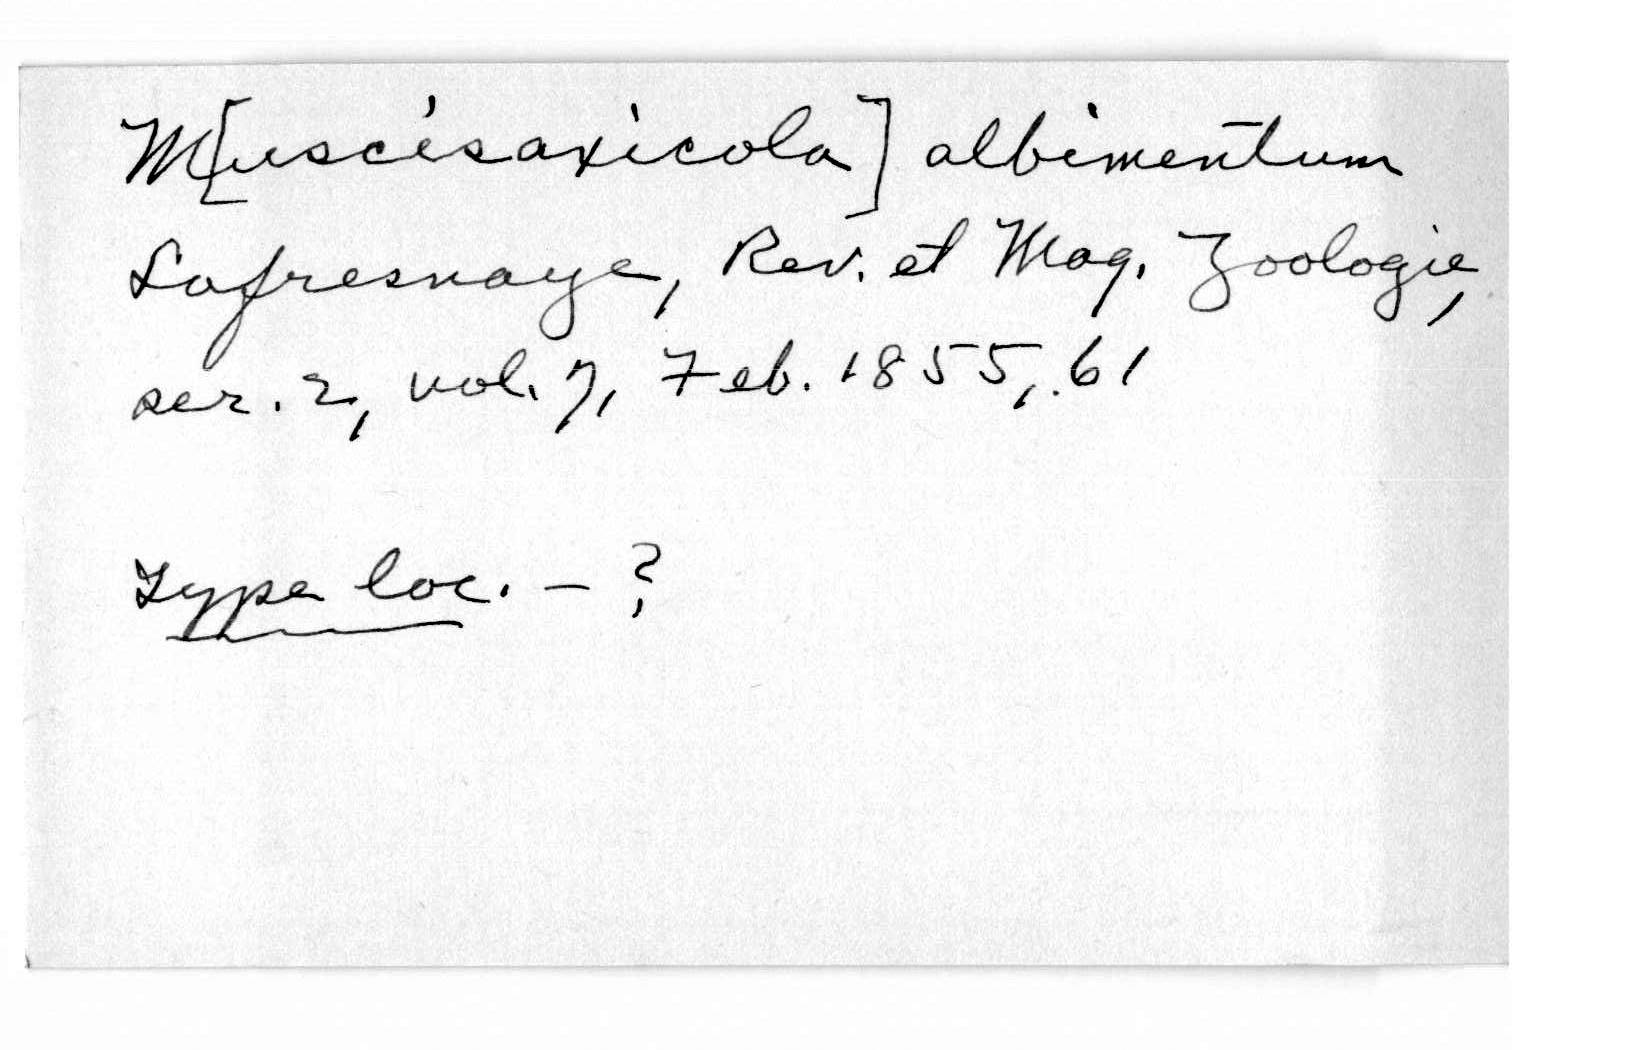 M[uscisaxicola] albimentum
Lafresnaye, Rev. et Mag. Zoologie,
ser. 2, vol. 7, Feb. 1855, 61
Type loc. - ?